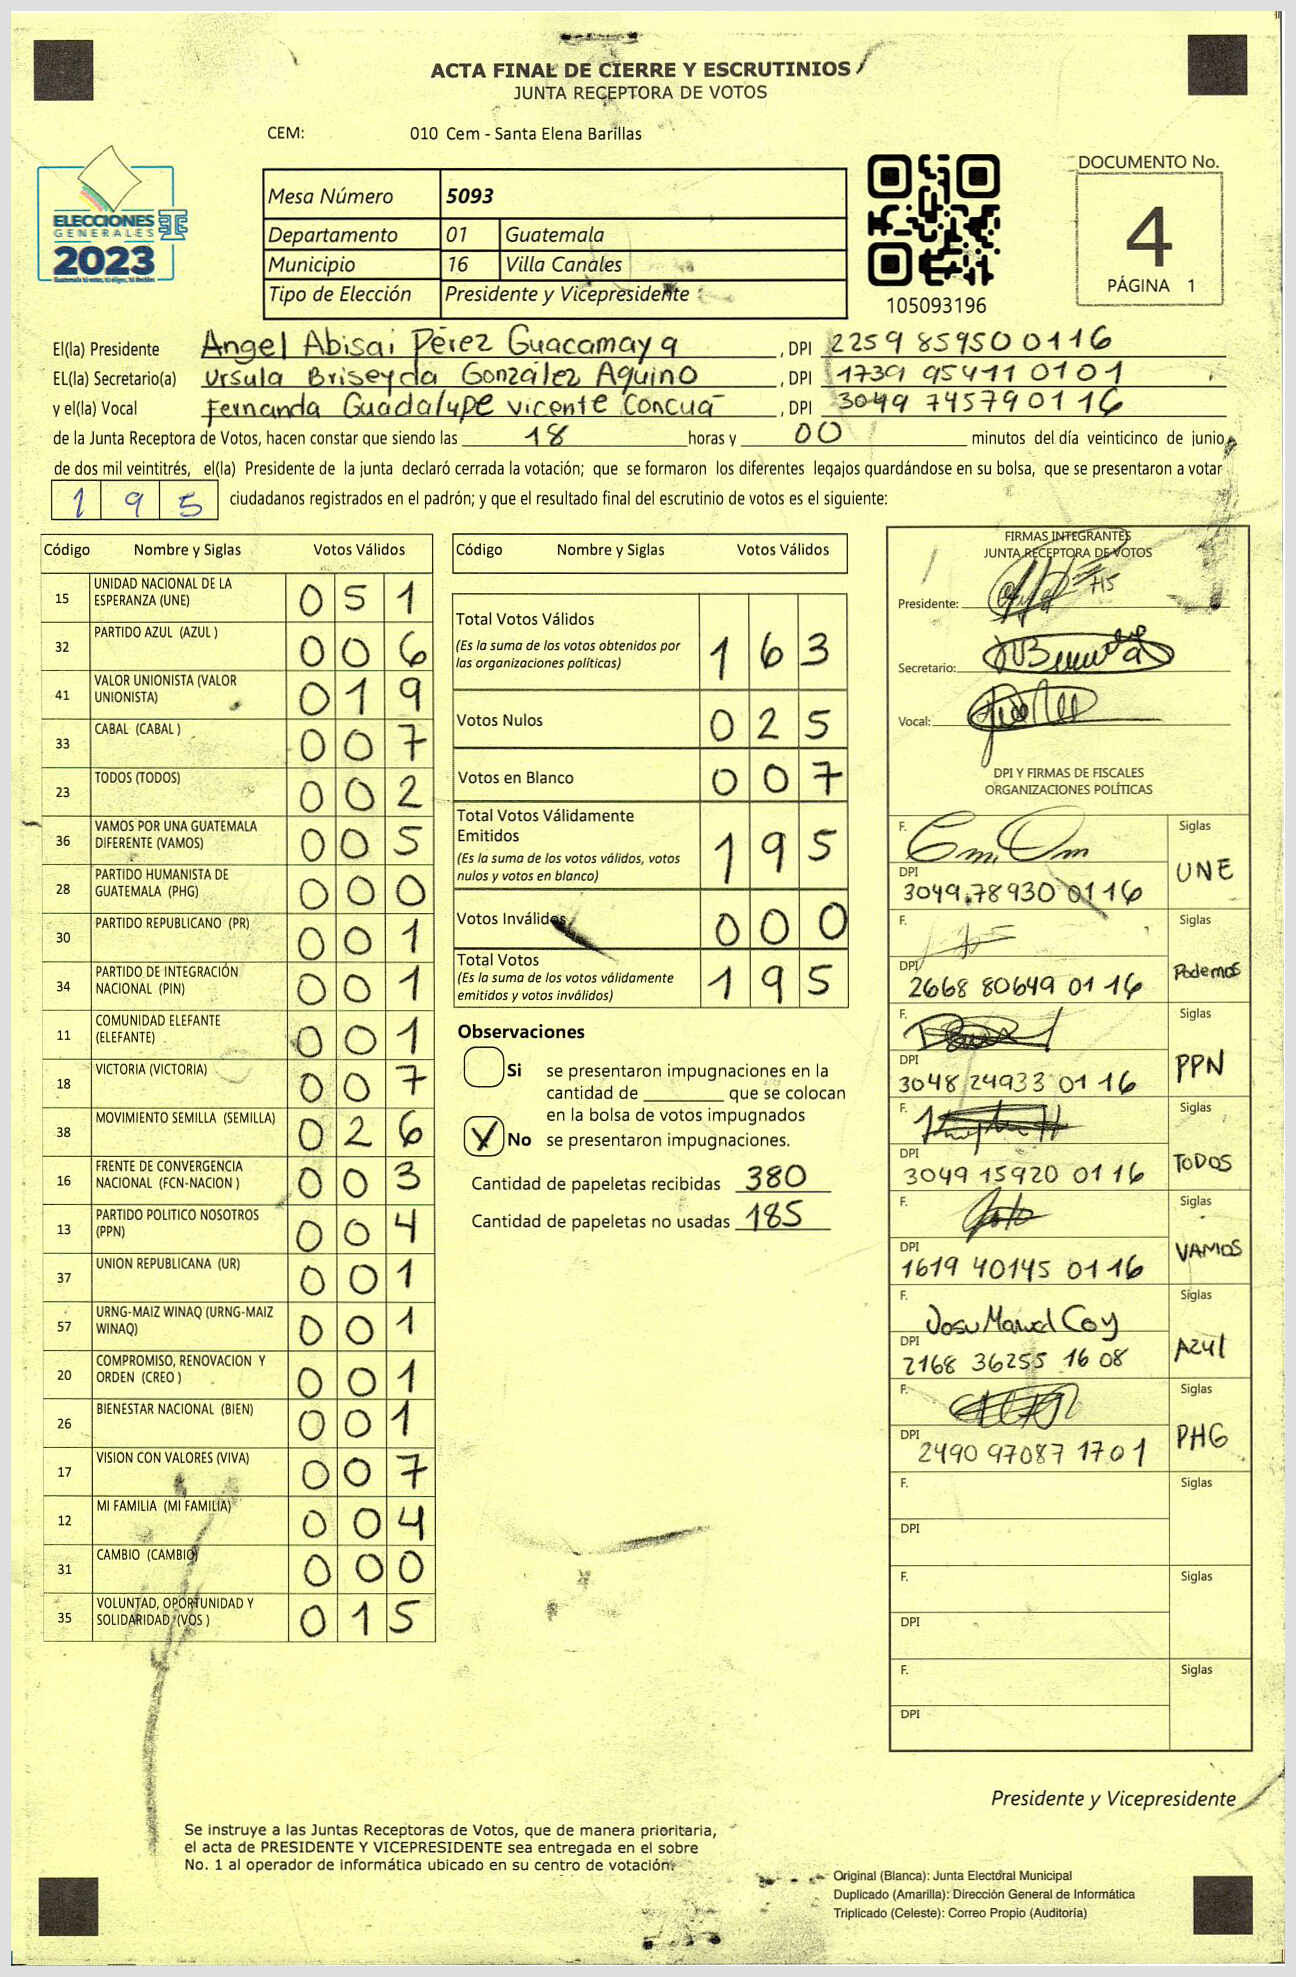 ACTA FINAL DE CIERRE Y ESCRUTINIOS
JUNTA RECEPTORA DE VOTOS
CEM: 010 Cem - Santa Elena Barillas
ELECCIONES
GENERALES
2023
Mesa Número 5093
Departamento 01 Guatemala
Municipio 16 Villa Canales
Tipo de Elección Presidente y Vicepresidente
105093196
DOCUMENTO No.
4
PÁGINA 1
El(la) Presidente Angel Abisai Pérez Guacamaya , DPI 2259 85950 0116
EL(la) Secretario(a) Ursula Briseyda González Aquino , DPI 1739 95411 0101
y el(la) Vocal Fernanda Guadalupe vicente Concuá , DPI 3049 74579 0116
de la Junta Receptora de Votos, hacen constar que siendo las 18 horas y 00 minutos del día veinticinco de junio
de dos mil veintitrés, el(la) Presidente de la junta declaró cerrada la votación; que se formaron los diferentes legajos guardándose en su bolsa, que se presentaron a votar
195 ciudadanos registrados en el padrón; y que el resultado final del escrutinio de votos es el siguiente:
Código Nombre y Siglas Votos Válidos
15 UNIDAD NACIONAL DE LA ESPERANZA (UNE) 0 5 1
32 PARTIDO AZUL (AZUL ) 0 0 6
41 VALOR UNIONISTA (VALOR UNIONISTA) 0 1 9
33 CABAL (CABAL ) 0 0 7
23 TODOS (TODOS) 0 0 2
36 VAMOS POR UNA GUATEMALA DIFERENTE (VAMOS) 0 0 5
28 PARTIDO HUMANISTA DE GUATEMALA (PHG) 0 0 0
30 PARTIDO REPUBLICANO (PR) 0 0 1
34 PARTIDO DE INTEGRACIÓN NACIONAL (PIN) 0 0 1
11 COMUNIDAD ELEFANTE (ELEFANTE) 0 0 1
18 VICTORIA (VICTORIA) 0 0 7
38 MOVIMIENTO SEMILLA (SEMILLA) 0 2 6
16 FRENTE DE CONVERGENCIA NACIONAL (FCN-NACION ) 0 0 3
13 PARTIDO POLITICO NOSOTROS (PPN) 0 0 4
37 UNION REPUBLICANA (UR) 0 0 1
57 URNG-MAIZ WINAQ (URNG-MAIZ WINAQ) 0 0 1
20 COMPROMISO, RENOVACION Y ORDEN (CREO ) 0 0 1
26 BIENESTAR NACIONAL (BIEN) 0 0 1
17 VISION CON VALORES (VIVA) 0 0 7
12 MI FAMILIA (MI FAMILIA) 0 0 4
31 CAMBIO (CAMBIO) 0 0 0
35 VOLUNTAD, OPORTUNIDAD Y SOLIDARIDAD (VOS ) 0 1 5
Código Nombre y Siglas Votos Válidos
Total Votos Válidos
(Es la suma de los votos obtenidos por
las organizaciones políticas) 1 6 3
Votos Nulos 0 2 5
Votos en Blanco 0 0 7
Total Votos Válidamente
Emitidos
(Es la suma de los votos válidos, votos
nulos y votos en blanco) 1 9 5
Votos Inválidos 0 0 0
Total Votos
(Es la suma de los votos válidamente
emitidos y votos inválidos) 1 9 5
Observaciones
Si se presentaron impugnaciones en la
cantidad de ________ que se colocan
en la bolsa de votos impugnados
X No se presentaron impugnaciones.
Cantidad de papeletas recibidas 380
Cantidad de papeletas no usadas 185
FIRMAS INTEGRANTES
JUNTA RECEPTORA DE VOTOS
Presidente:
Secretario:
Vocal:
DPI Y FIRMAS DE FISCALES
ORGANIZACIONES POLÍTICAS
F. Siglas
DPI 3049 78930 0116 UNE
F. Siglas
DPI 2668 80649 01 16 Podemos
F. Siglas
DPI 3048 24933 01 16 PPN
F. Siglas
DPI 3049 15920 01 16 TODOS
F. Siglas
DPI 1619 40145 01 16 VAMOS
F. Siglas
DPI 2168 36255 16 08 Azul
F. Siglas
DPI 2490 97087 1701 PHG
F. Siglas
DPI
F. Siglas
DPI
F. Siglas
DPI
Presidente y Vicepresidente
Se instruye a las Juntas Receptoras de Votos, que de manera prioritaria,
el acta de PRESIDENTE Y VICEPRESIDENTE sea entregada en el sobre
No. 1 al operador de informática ubicado en su centro de votación.
Original (Blanca): Junta Electoral Municipal
Duplicado (Amarilla): Dirección General de Informática
Triplicado (Celeste): Correo Propio (Auditoría)